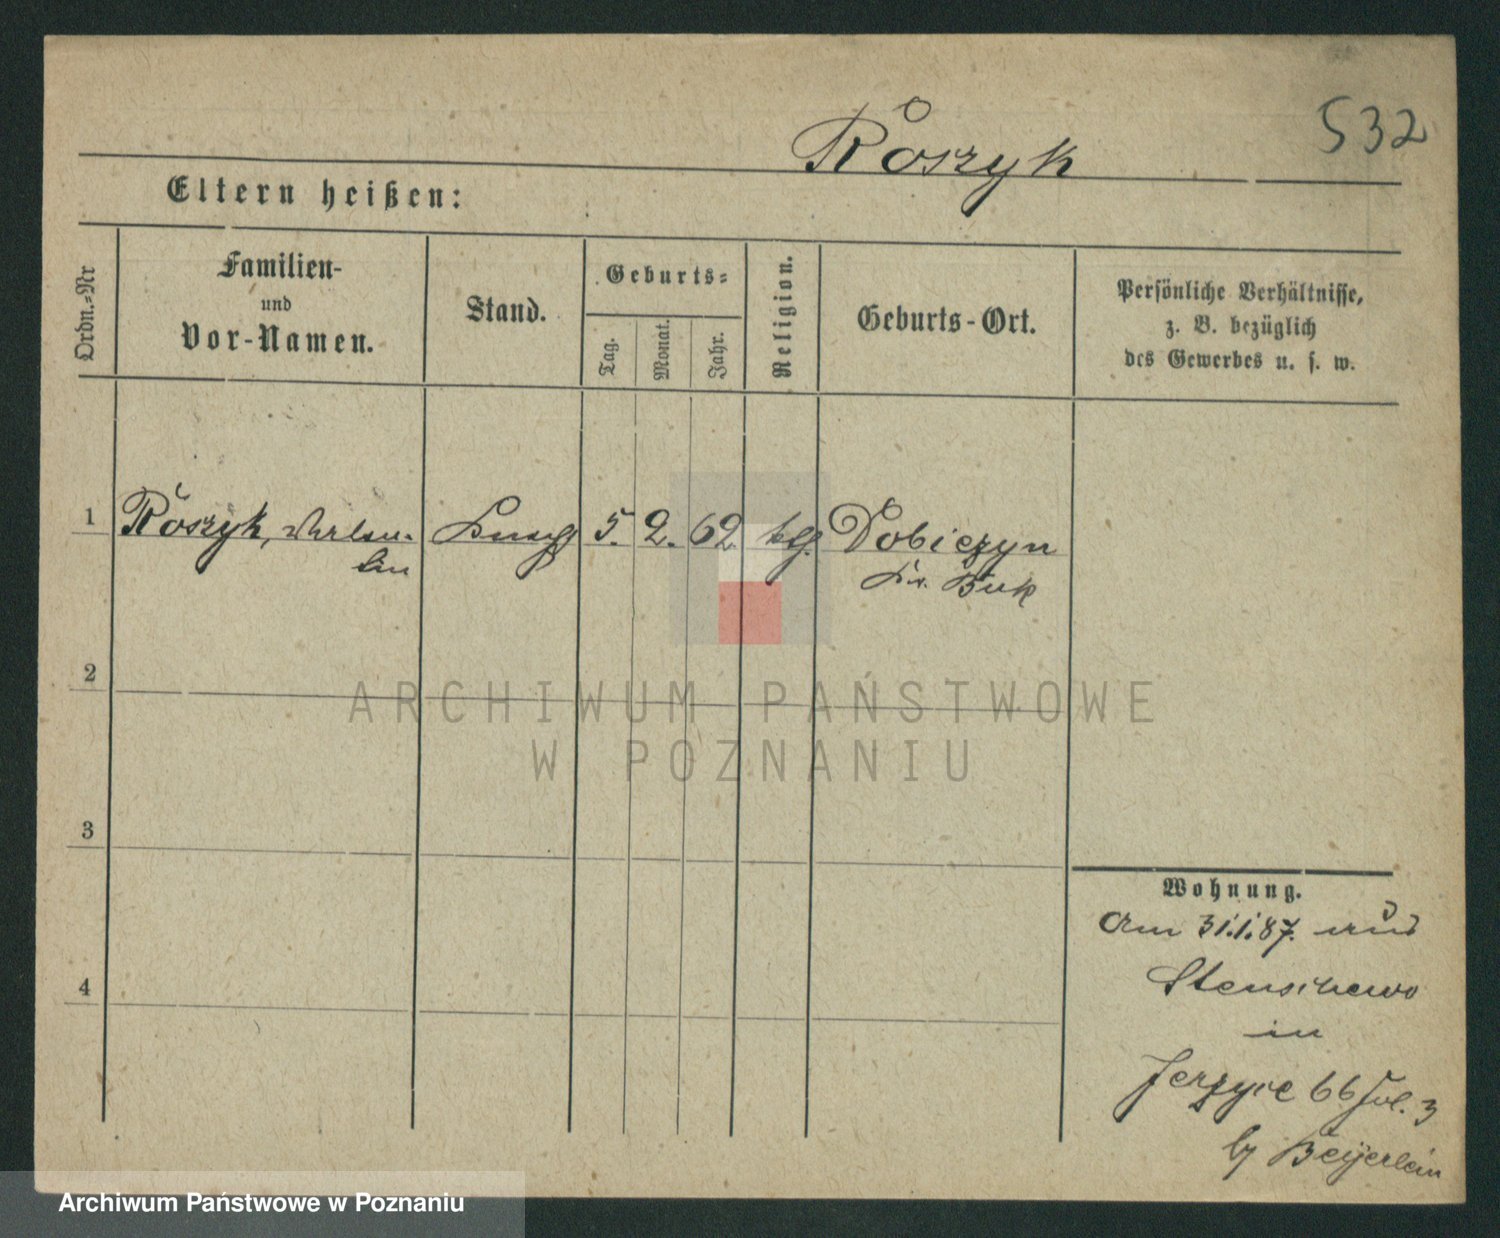 532
Roszyk
Eltern heißen:
Ordn.=Nr
Familien-
und
Vor-Namen.
Stand.
Geburts=
Tag.
Monat.
Jahr.
Religion.
Geburts-Ort.
Persönliche Verhältnisse,
z. B. bezüglich
des Gewerbes u. s. w.
1 Roszyk, Valen- 5. 2. 62 ktl. Dobiezyn
tin Kr. Buk
2
3
4
Wohnung.
Am 31.1.87. aus
Stenschewo
in
Jerzyce 66 3
by Beyerlein
ARCHIWUM PAŃSTWOWE
W POZNANIU
Archiwum Państwowe w Poznaniu